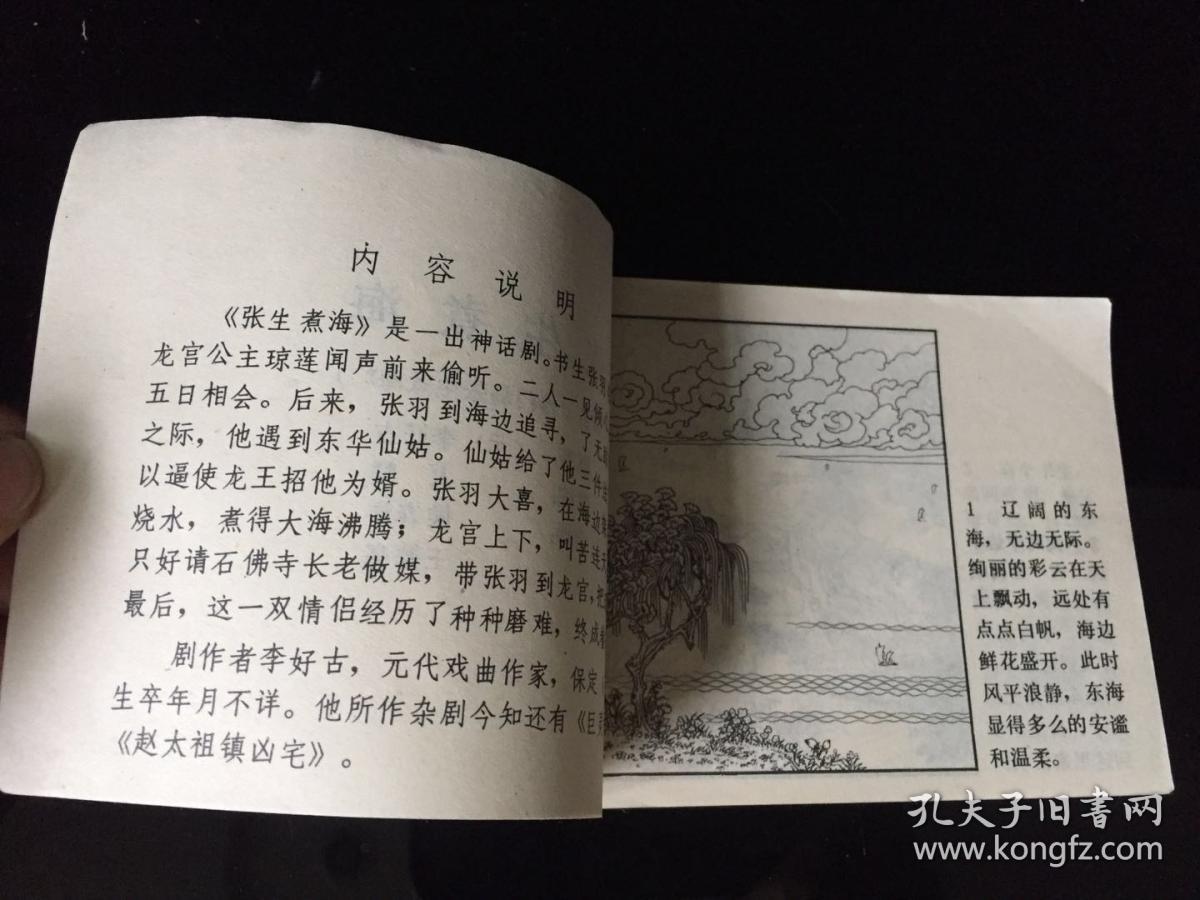 内容说明
《张生煮海》是一出神话剧。书生张羽
龙宫公主琼莲闻声前来偷听。二人一见倾
五日相会。后来，张羽到海边追寻，了无
之际，他遇到东华仙姑。仙姑给了他三件
以逼使龙王招他为婿。张羽大喜，在海边
烧水，煮得大海沸腾；龙宫上下，叫苦连
只好请石佛寺长老做媒，带张羽到龙宫，把
最后，这一双情侣经历了种种磨难，终成
剧作者李好古，元代戏曲作家，保定
生卒年月不详。他所作杂剧今知还有《巨
《赵太祖镇凶宅》。
1 辽阔的东
海，无边无际。
绚丽的彩云在天
上飘动，远处有
点点白帆，海边
鲜花盛开。此时
风平浪静，东海
显得多么的安谧
和温柔。
孔夫子旧书网
www.kongfz.com